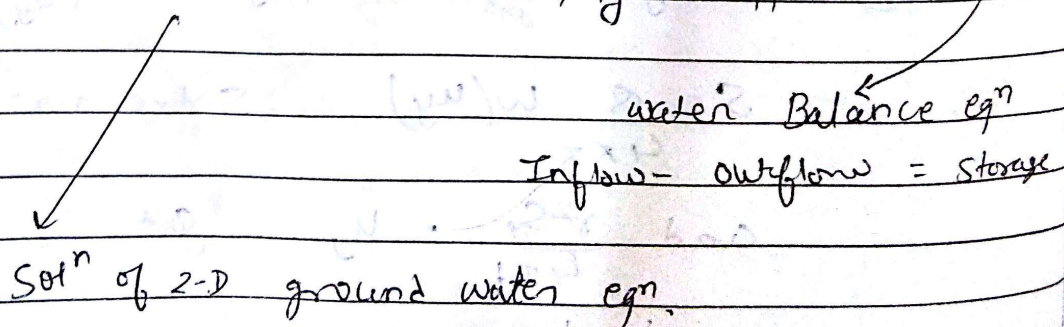 water Balance eqn
Inflow - outflow = storage
Soln of 2-D ground water eqn.